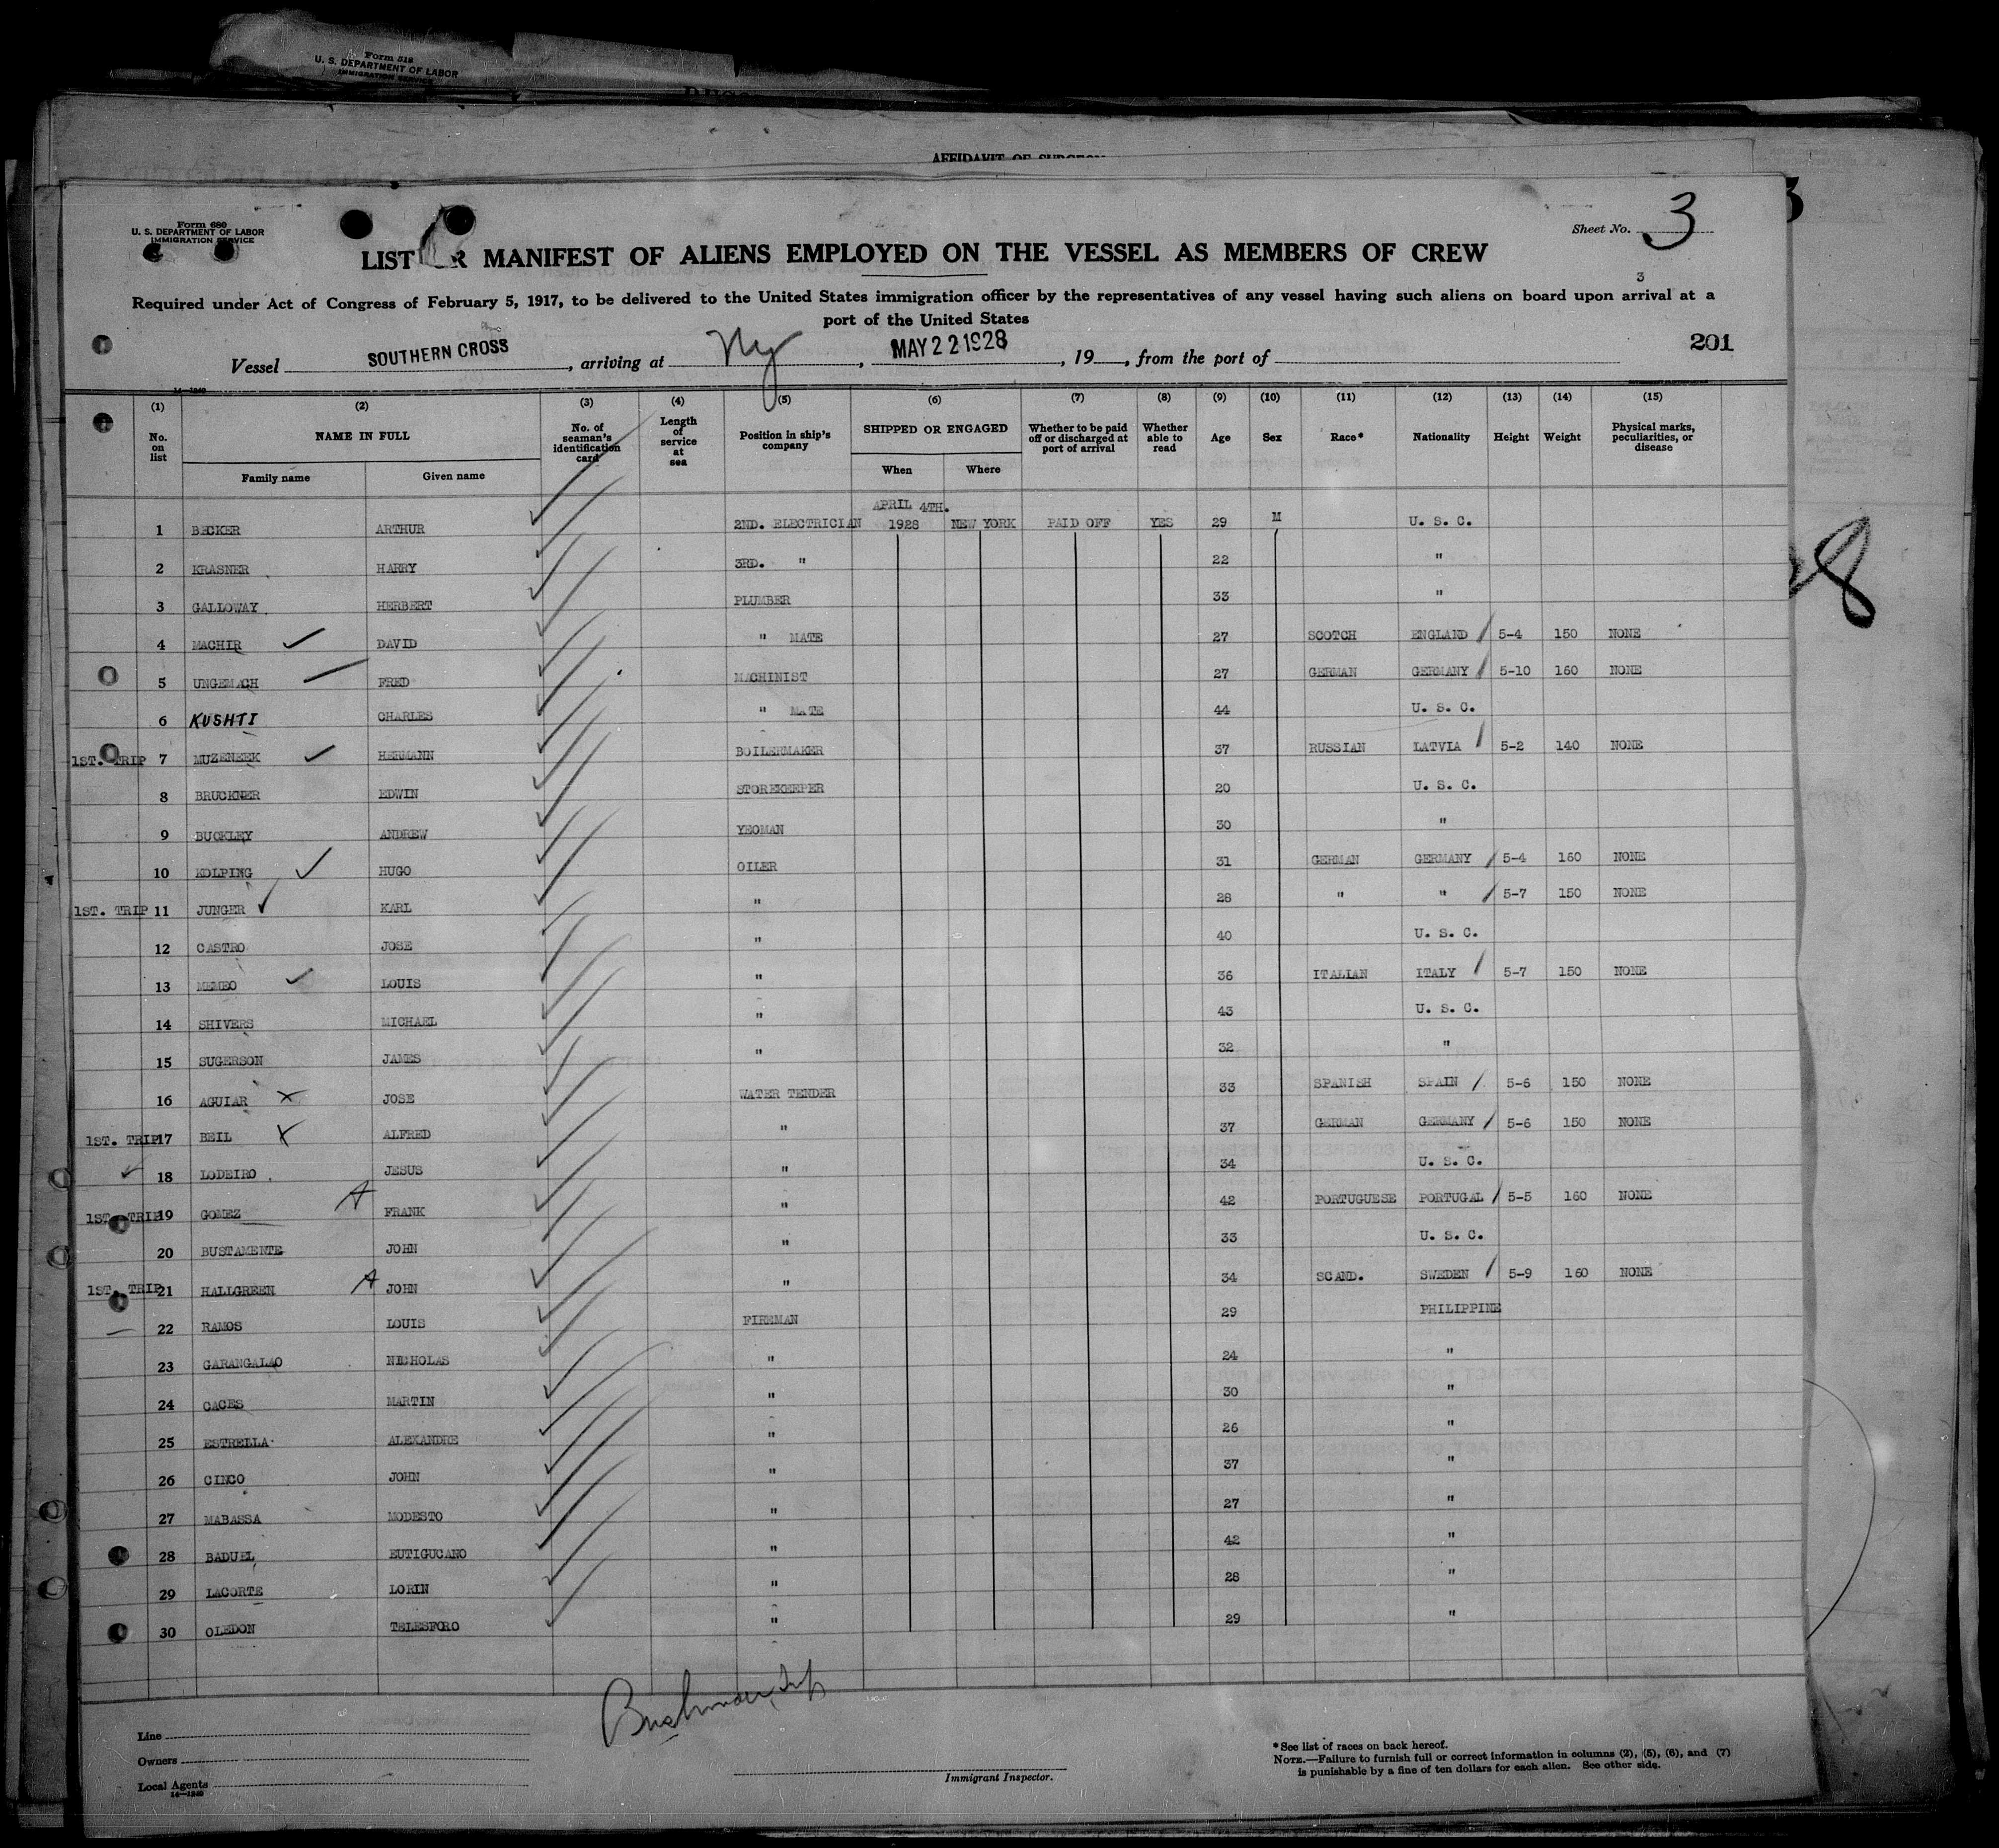 Form 519
U. S. DEPARTMENT OF LABOR
IMMIGRATION SERVICE
AFFIDAVIT OF SURGEON
Form 680
U. S. DEPARTMENT OF LABOR
IMMIGRATION SERVICE
Sheet No. 3
LIST OR MANIFEST OF ALIENS EMPLOYED ON THE VESSEL AS MEMBERS OF CREW
3
Required under Act of Congress of February 5, 1917, to be delivered to the United States immigration officer by the representatives of any vessel having such aliens on board upon arrival at a
port of the United States
201
Vessel SOUTHERN CROSS, arriving at Ny, MAY 22 1928, 19, from the port of
14—1240
(1) (2) (3) (4) (5) (6) (7) (8) (9) (10) (11) (12) (13) (14) (15)
No. on list NAME IN FULL No. of seaman's identification card Length of service at sea Position in ship's company SHIPPED OR ENGAGED Whether to be paid off or discharged at port of arrival Whether able to read Age Sex Race* Nationality Height Weight Physical marks, peculiarities, or disease
Family name Given name When Where
1 BECKER ARTHUR 2ND. ELECTRICIAN APRIL 4TH. 1928 NEW YORK PAID OFF YES 29 M U. S. C.
2 KRASNER HARRY 3RD. " 22 "
3 GALLOWAY HERBERT PLUMBER 33 "
4 MACHIR DAVID " MATE 27 SCOTCH ENGLAND 5-4 150 NONE
5 UNGEMACH FRED MACHINIST 27 GERMAN GERMANY 5-10 160 NONE
6 KUSHTI CHARLES " MATE 44 U. S. C.
1ST. TRIP 7 MUZENEEK HERMANN BOILERMAKER 37 RUSSIAN LATVIA 5-2 140 NONE
8 BRUCKNER EDWIN STOREKEEPER 20 U. S. C.
9 BUCKLEY ANDREW YEOMAN 30 "
10 KOLPING HUGO OILER 31 GERMAN GERMANY 5-4 160 NONE
1ST. TRIP 11 JUNGER KARL " 28 " " 5-7 150 NONE
12 CASTRO JOSE " 40 U. S. C.
13 MEMEO LOUIS " 36 ITALIAN ITALY 5-7 150 NONE
14 SHIVERS MICHAEL " 43 U. S. C.
15 SUGERSON JAMES " 32 "
16 AGUIAR X JOSE WATER TENDER 33 SPANISH SPAIN 5-6 150 NONE
1ST. TRIP 17 BEIL X ALFRED " 37 GERMAN GERMANY 5-6 150 NONE
18 LODEIRO JESUS " 34 U. S. C.
1ST. TRIP 19 GOMEZ A FRANK " 42 PORTUGUESE PORTUGAL 5-5 160 NONE
20 BUSTAMENTE JOHN " 33 U. S. C.
1ST. TRIP 21 HALLGREEN A JOHN " 34 SCAND. SWEDEN 5-9 160 NONE
22 RAMOS LOUIS FIREMAN 29 PHILIPPINE
23 GARANGALAO NICHOLAS " 24 "
24 CACES MARTIN " 30 "
25 ESTRELLA ALEXANDRE " 26 "
26 CINCO JOHN " 37 "
27 MABASSA MODESTO " 27 "
28 BADUEL EUTIGUCANO " 42 "
29 LACORTE LORIN " 28 "
30 OLEDON TELESFORO " 29 "
Line
Owners
Local Agents
14—1240
Immigrant Inspector.
*See list of races on back hereof.
NOTE.—Failure to furnish full or correct information in columns (2), (5), (6), and (7)
is punishable by a fine of ten dollars for each alien. See other side.